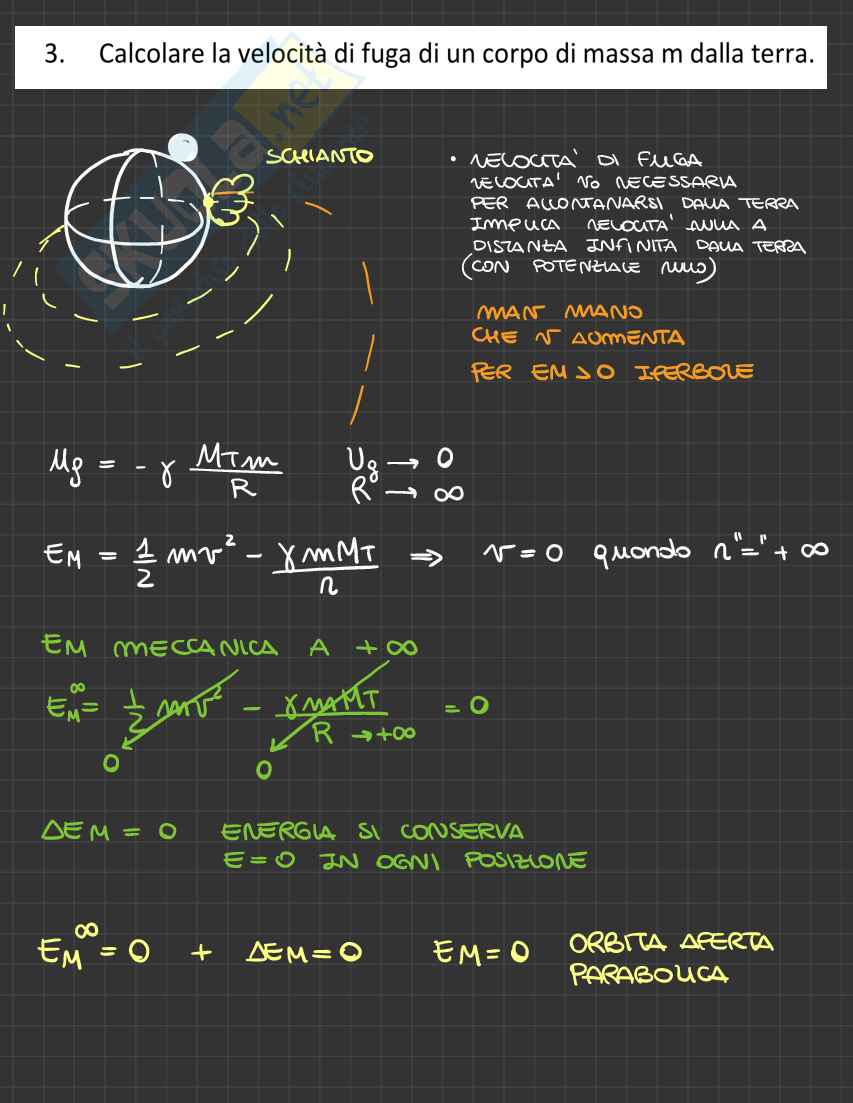 3. Calcolare la velocità di fuga di un corpo di massa m dalla terra.
SCHIANTO
• VELOCITA' DI FUGA
VELOCITA' V₀ NECESSARIA
PER ALLONTANARSI DALLA TERRA
IMPLICA VELOCITA' NULLA A
DISTANZA INFINITA DALLA TERRA
(CON POTENZIALE NULLO)
MAN MANO
CHE V AUMENTA
PER EM > 0 IPERBOLE
Ug = - γ MTm / R Ug → 0
R → ∞
EM = 1/2 mv² - γmMT / r ⇒ v = 0 quando r "=" + ∞
EM MECCANICA A +∞
EM^∞ = 1/2 mv² - γmMT / R → +∞ = 0
0 0
ΔEM = 0 ENERGIA SI CONSERVA
E = 0 IN OGNI POSIZIONE
EM^∞ = 0 + ΔEM = 0 EM = 0 ORBITA APERTA
PARABOLICA
SKUOLA.net